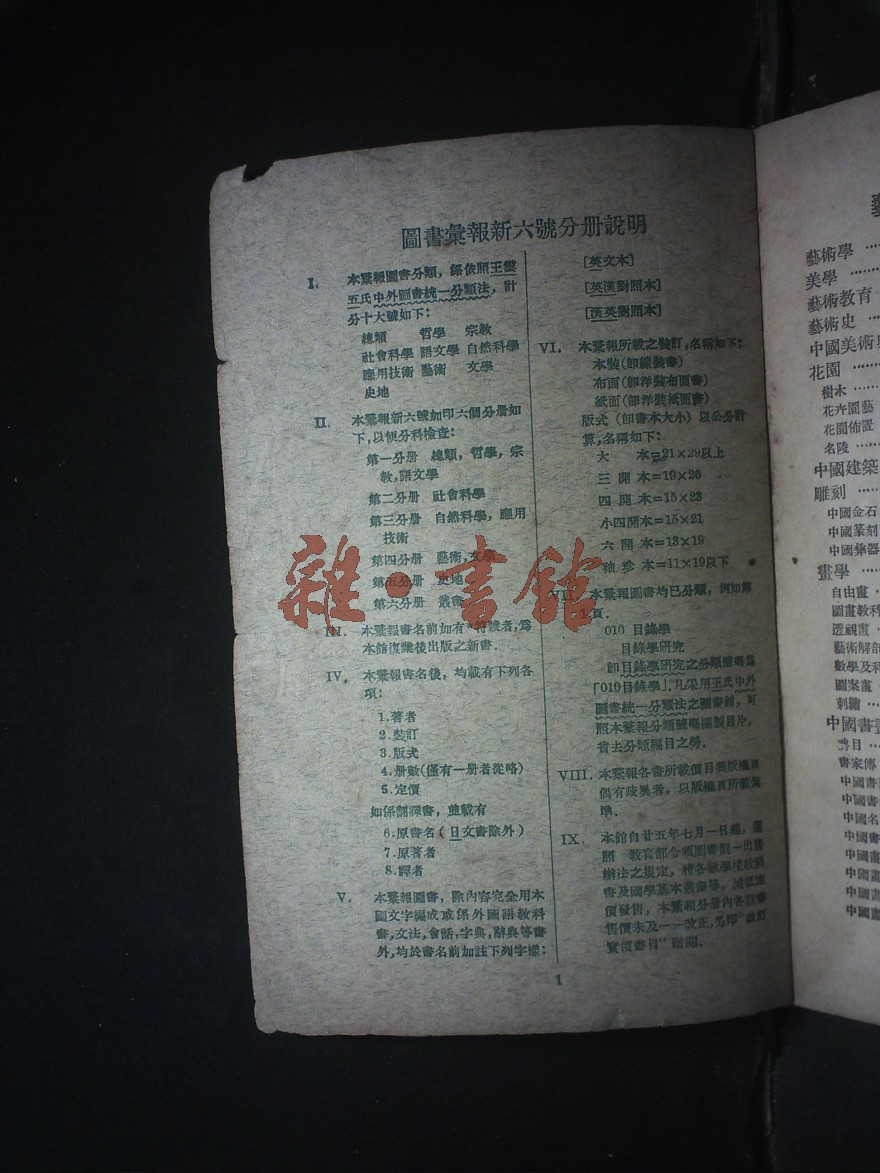 圖書彙報新六號分册說明
I. 本彙報圖書分類，係依照王雲
五氏中外圖書統一分類法，計
分十大號如下：
總類 哲學 宗教
社會科學 語文學 自然科學
應用技術 藝術 文學
史地
II. 本彙報新六號加印六個分册如
下，以便分科檢查：
第一分册 總類，哲學，宗
教，語文學
第二分册 社會科學
第三分册 自然科學，應用
技術
第四分册 藝術，文學
第五分册 史地
第六分册 叢書
III. 本彙報書名前加有*符號者，爲
本館復業後出版之新書．
IV. 本彙報書名後，均載有下列各
項：
1.著者
2.裝訂
3.版式
4.册數(僅有一册者從略)
5.定價
如係翻譯書，並載有
6.原書名(日文書除外)
7.原著者
8.譯者
V. 本彙報圖書，除內容完全用本
國文字編成或係外國語教科
書，文法，會話，字典，辭典等書
外，均於書名前加註下列字樣：
[英文本]
[英漢對照本]
[漢英對照本]
VI. 本彙報所載之裝訂，名稱如下：
本裝(卽線裝書)
布面(卽洋裝布面書)
紙面(卽洋裝紙面書)
版式(卽書本大小)以公分計
算，名稱如下：
大 本=21×29以上
三開本=19×26
四開本=15×23
小四開本=15×21
六開本=13×19
袖珍本=11×19以下
VII. 本彙報圖書均已分類，例如第
頁．
010 目錄學
目錄學研究
卽目錄學研究之分類號碼爲
「010目錄學」．凡采用王氏中外
圖書統一分類法之圖書館，可
照本彙報分類號碼編製目片，
省去分類編目之勞．
VIII. 本彙報各書所載價目與版權頁
偶有歧異者，以版權頁所載爲
準．
IX. 本館自廿五年七月一日起，遵
照 教育部令頒圖書劃一出售
辦法之規定，將各級學校教科
書及國學基本叢書等，減低定
價發售，本彙報分册內各該書
售價未及一一改正，另印"改訂
實價書目"贈閱．
1
雜·書館
藝術學
美學
藝術教育
藝術史
中國美術
花園
樹木
花卉園藝
花園佈置
名陵
中國建築
雕刻
中國金石
中國篆刻
中國彝器
畫學
自由畫
圖畫教科
透視畫
藝術解剖
數學及科
圖案畫
刺繡
中國書畫
書目
書家傳
中國書
中國書
中國名
中國書
中國畫
中國畫
中國畫
中國畫